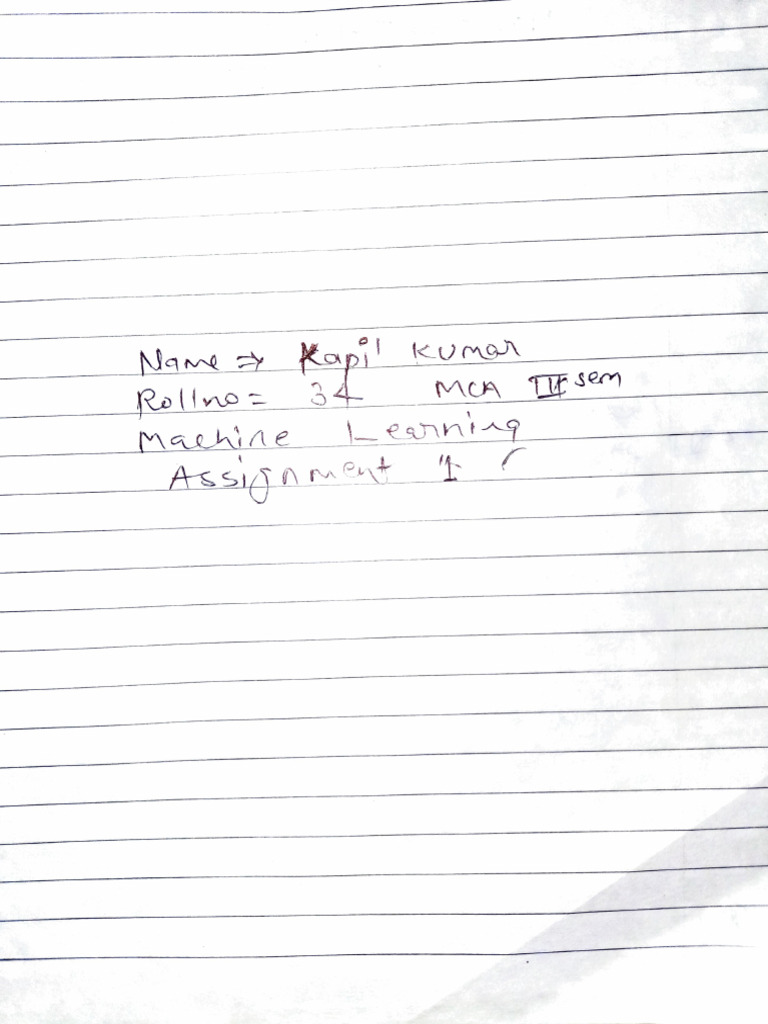 Name ⇒ Kapil Kumar
Rollno = 34 MCA III sem
Machine Learning
Assignment 1